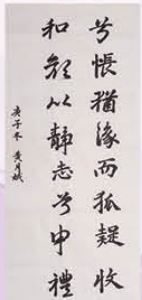 兮悵猶豫而狐疑收
和顏以靜志兮申禮
庚子冬 黄月斌